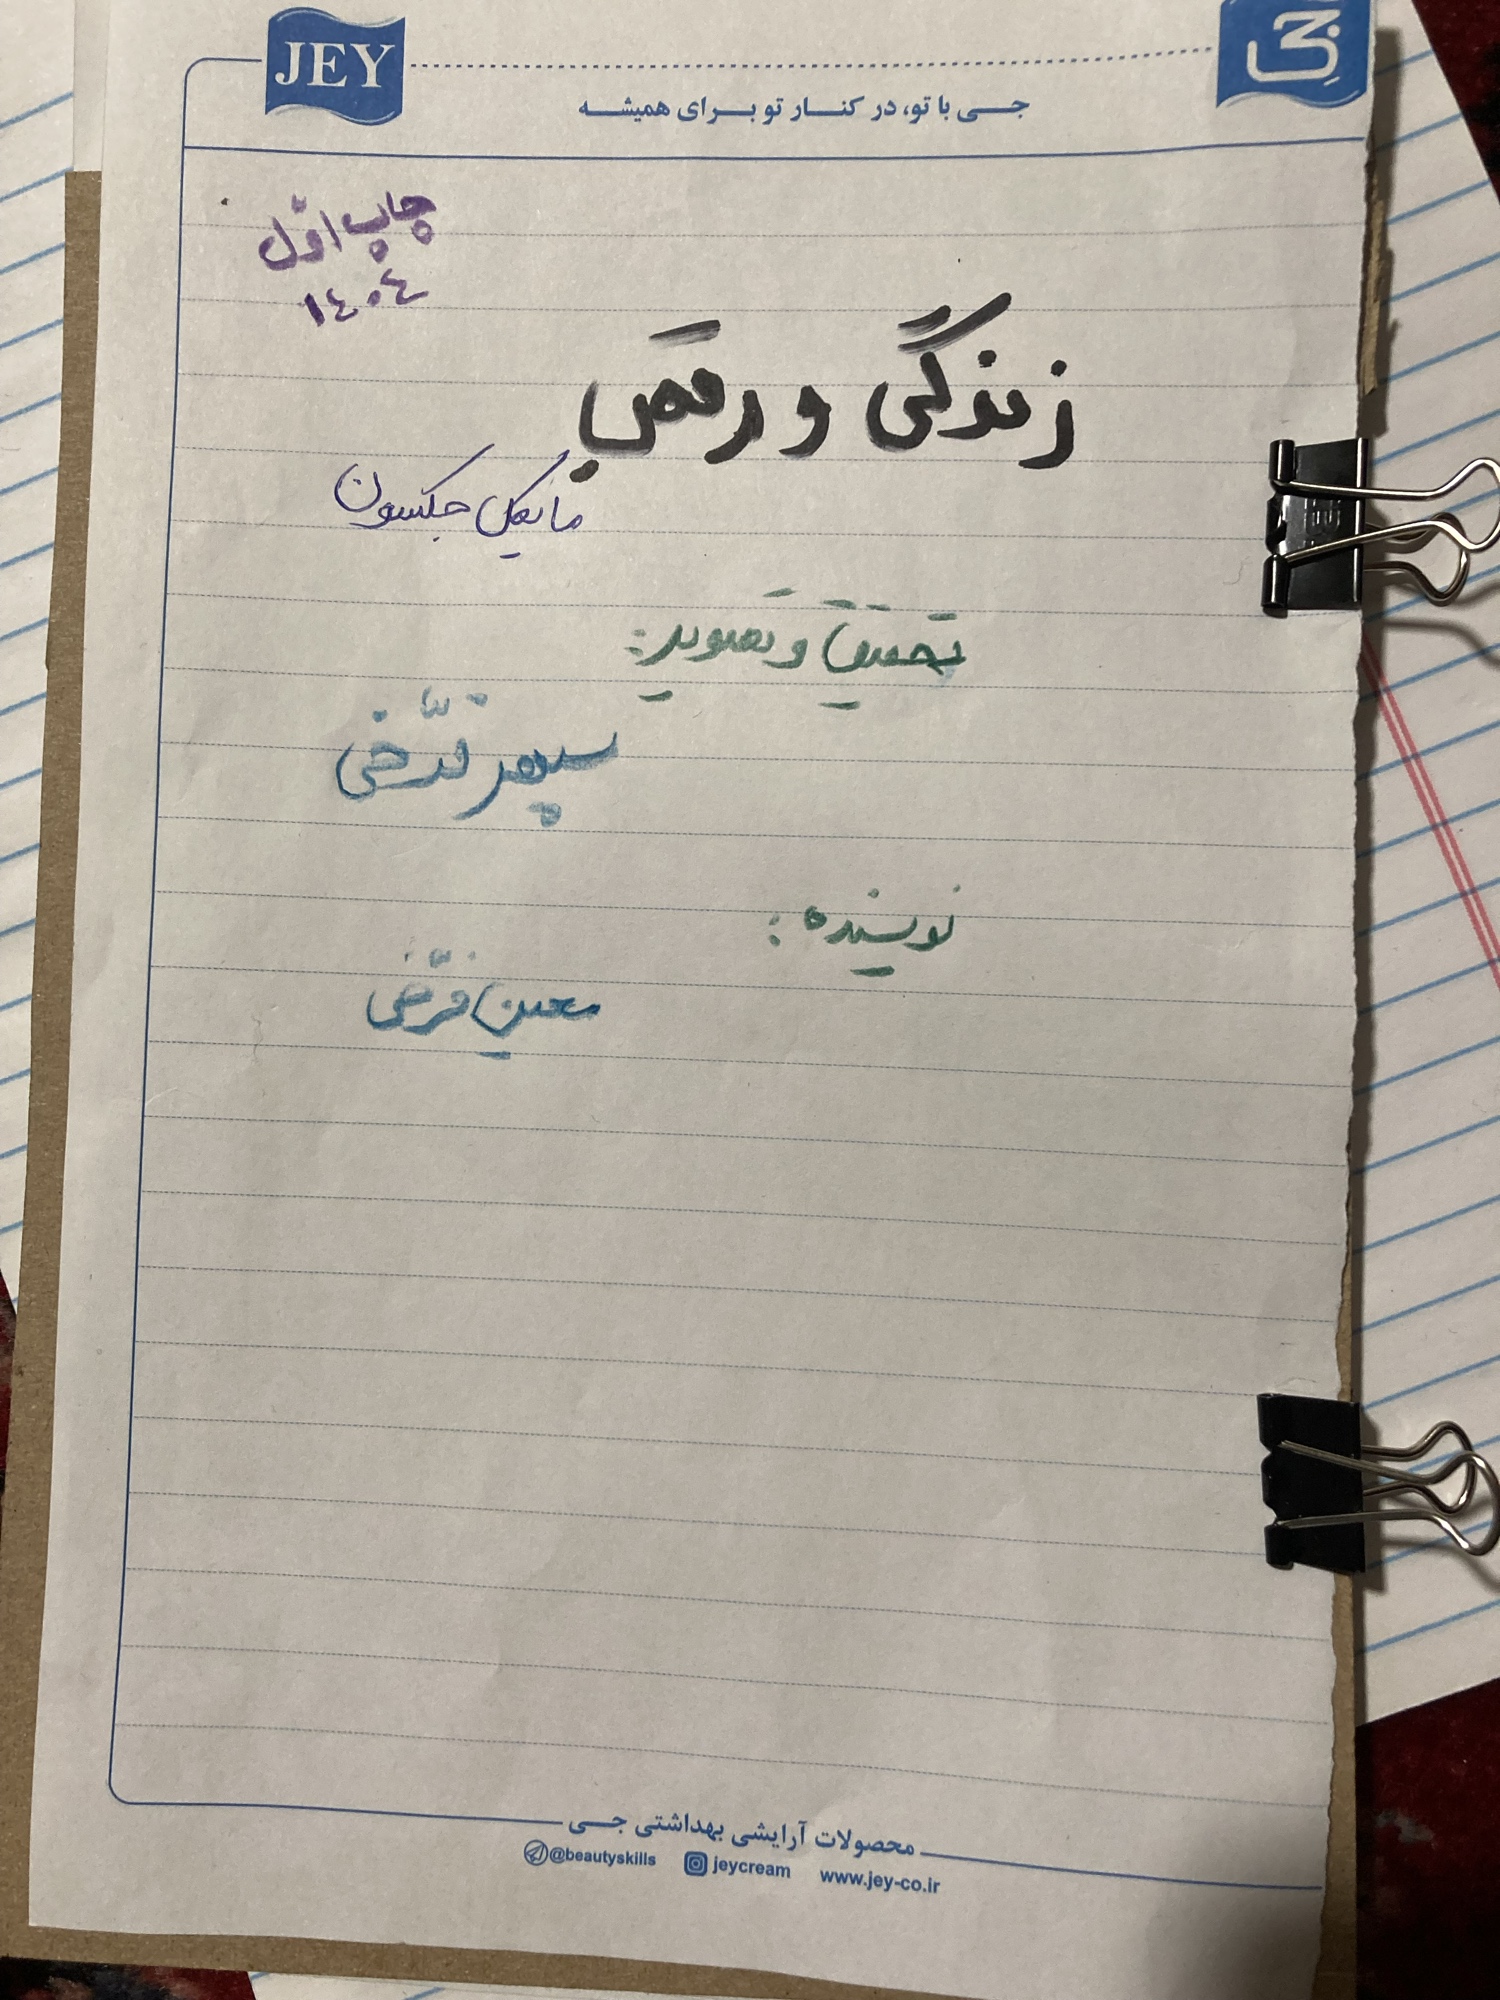 JEY
جی
جی با تو، در کنار تو برای همیشه
چاپ اوّل
۱٤۰٤
زندگی و رقص
مایکل جکسون
تحقیق و تصویر:
سپهر فرّخی
نویسنده:
معین فرّخی
محصولات آرایشی بهداشتی جی
@beautyskills jeycream www.jey-co.ir